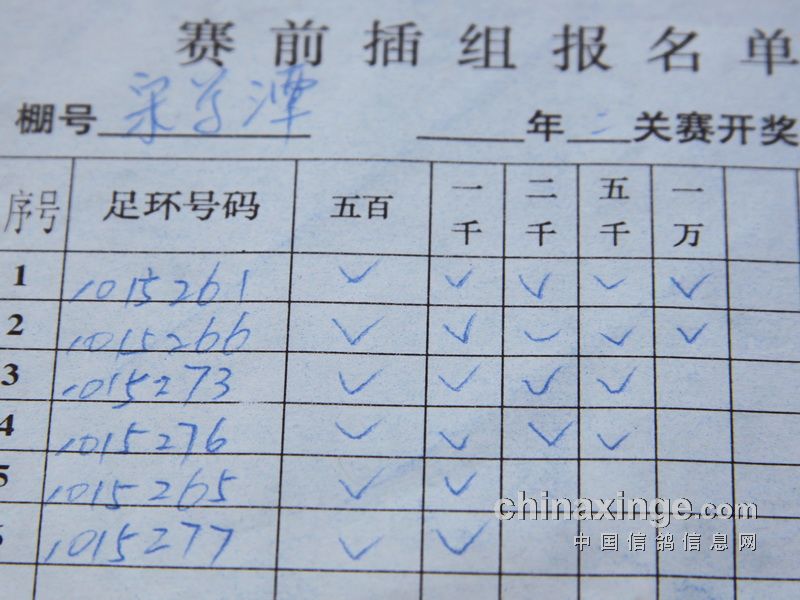 赛前插组报名单
棚号 梁 潭 年 二 关赛开奖
序号 足环号码 五百 一千 二千 五千 一万
1 1015261 ✓ ✓ ✓ ✓ ✓
2 1015266 ✓ ✓ ✓ ✓ ✓
3 1015273 ✓ ✓ ✓ ✓
4 1015276 ✓ ✓ ✓ ✓
5 1015265 ✓ ✓
6 1015277 ✓ ✓
chinaxinge.com
中国信鸽信息网